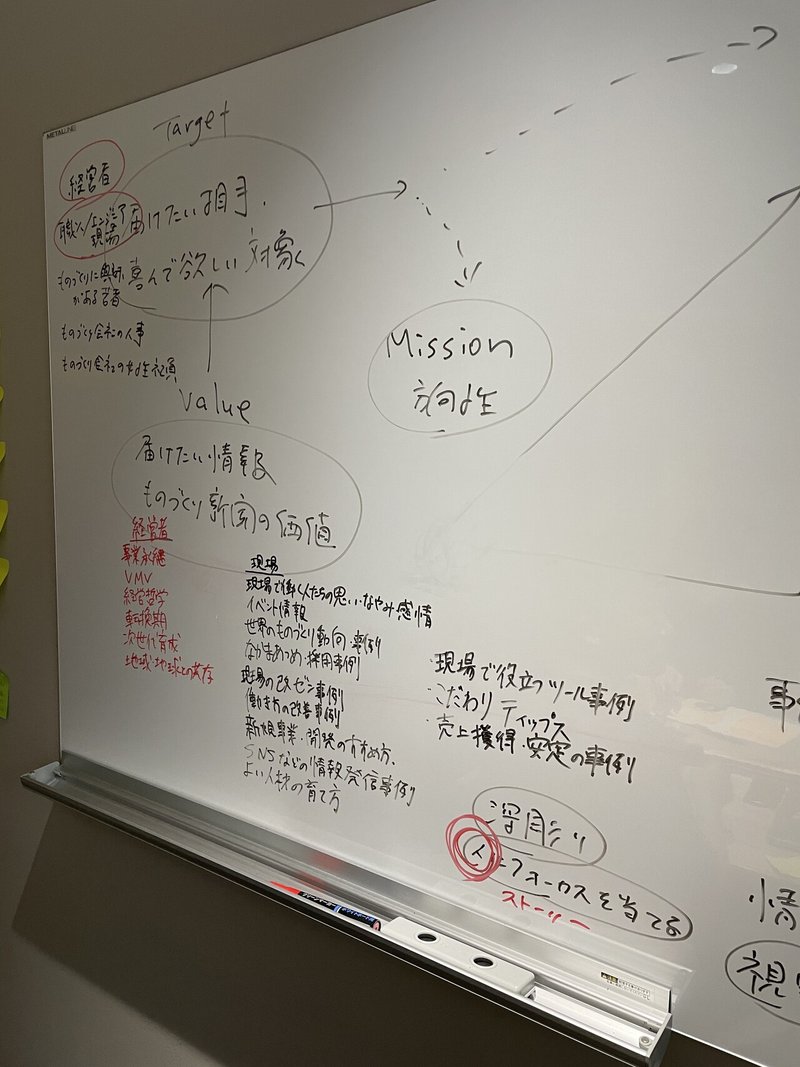 Target
経営者
職人/エンジニア
現場
届けたい相手.
喜んで欲しい対象
ものづくりに興味
がある若者
ものづくり会社の人事
ものづくり会社の女性社員
Mission
方向性
Value
届けたい情報
ものづくり新聞の価値
経営者
事業承継
VMV
経営哲学
転換期
次世代育成
地域・地球との共存
現場
現場で働く人たちの思い・なやみ 感情
イベント情報
世界のものづくり動向・事例
なかまあつめ・採用事例
現場の改ゼン事例
働き方の改善事例
新規事業・開発のすすめ方.
SNSなどの情報発信事例
よい人材の育て方
・現場で役立つツール事例
・こだわり ティップス
・売上獲得・安定の事例
深彫り
人にフォーカスを当てる
ストーリー
事
情
視